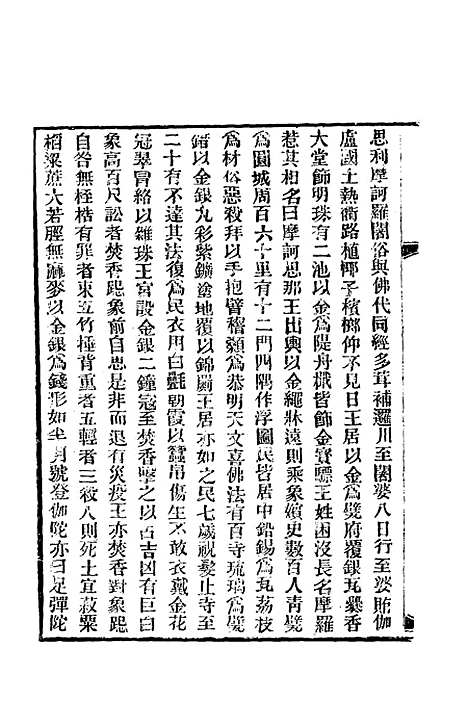 思利摩訶羅闍俗與佛代同經多茸補邏川至闍婆八日行至婆賄伽
盧國土熱衢路植椰子檳榔仰不見日王居以金爲甓府覆銀瓦爨香
大堂飾明珠有二池以金爲隄舟檝皆飾金寶驃王姓困沒長名摩羅
惹其相名曰摩訶思那王出輿以金繩牀遠則乘象嬪史數百人靑甓
爲圓城周百六十里有十二門四隅作浮圖民皆居中鉛錫爲瓦荔枝
爲材俗惡殺拜以手抱臂稽顙爲恭明天文喜佛法有百寺琉璃爲甓
錯以金銀丹彩紫鑛塗地覆以錦罽王居亦如之民七歲祝髮止寺至
二十有不達其法復爲民衣用白㲲朝霞以蠶帛傷生不敢衣戴金花
冠翠冒絡以雜珠王宮設金銀二鐘寇至焚香擊之以占吉凶有巨白
象高百尺訟者焚香跽象前自思是非而退有災疫王亦焚香對象跽
自咎無桎梏有罪者束五竹捶背重者五輕者三殺人則死土宜菽粟
稻粱蔗大若脛無麻麥以金銀爲錢形如半月號登伽陀亦曰足彈陀